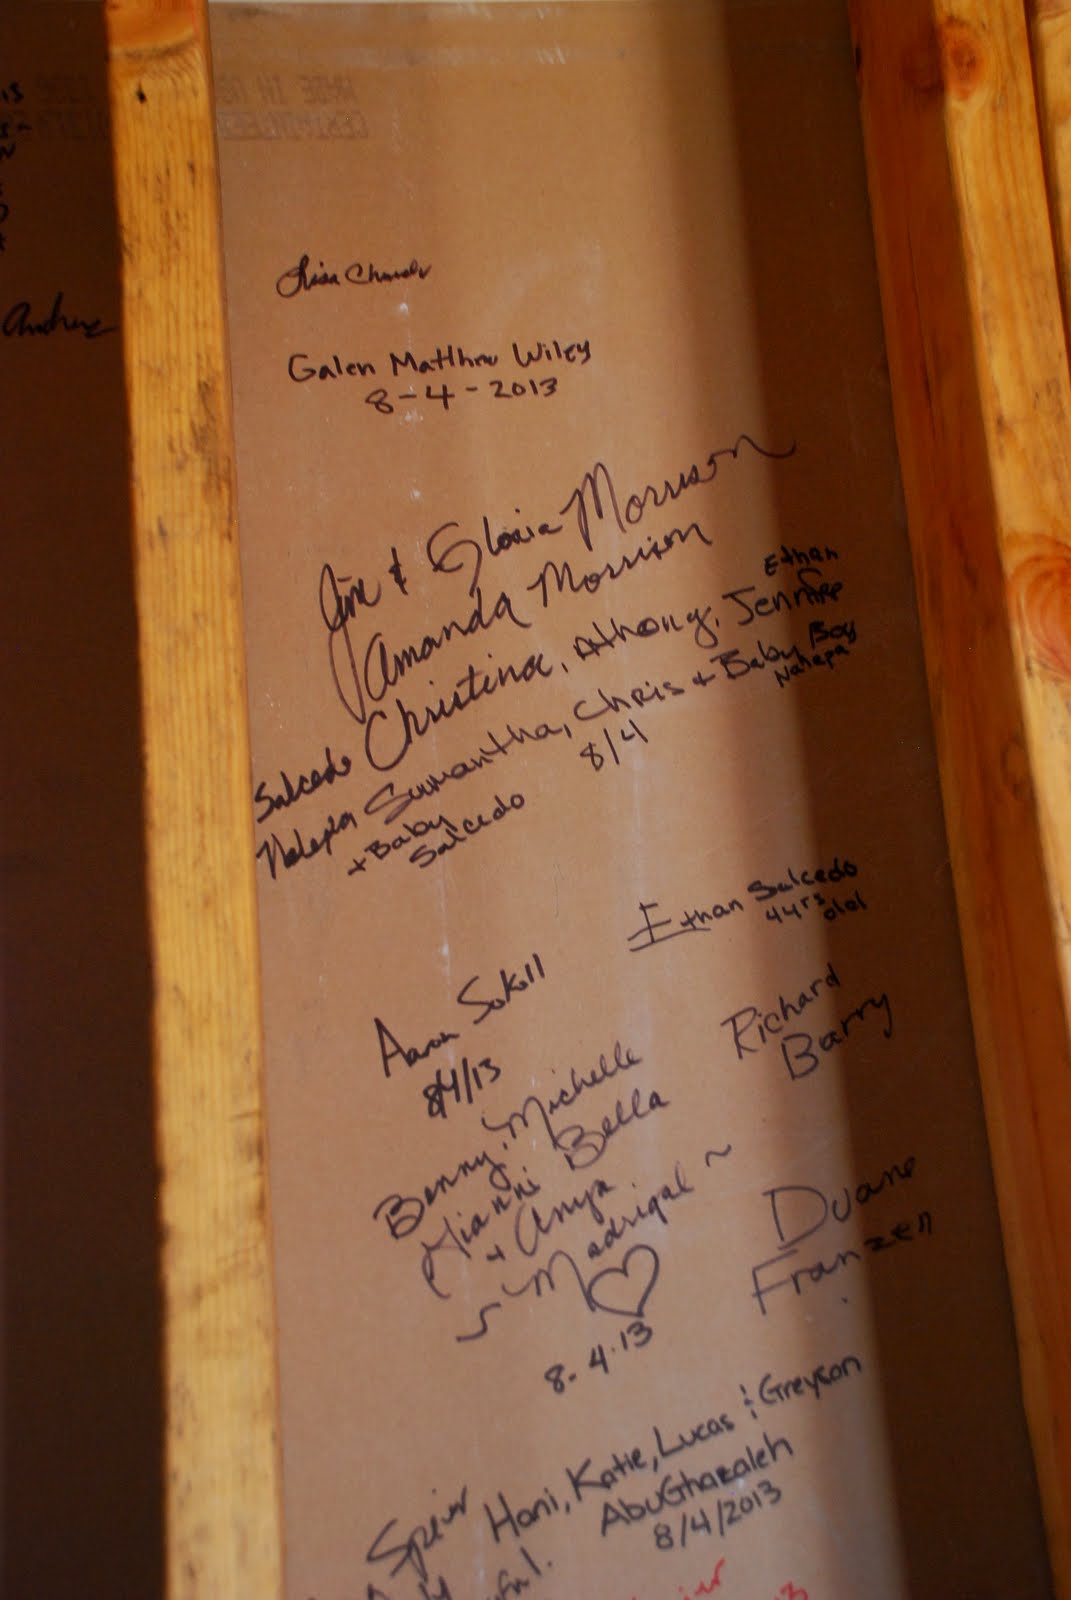 Lisa
Galen Matthew Wiley
8-4-2013
Jim & Gloria Morrison
Amanda Morrison
Ethan
Salcedo Christina, Anthony, Jennifer
Samantha, Chris + Baby Boy
Nalepa
8/4
+ Baby
Salcedo
Ethan Salcedo
4 yrs
old
Aaron
8/4/13
Richard
Barry
Benny, Michelle
Gianni Bella
+ Anya
~ Madrigal ~
8.4.13
Duane
Franzen
Hani, Katie, Lucas & Greyson
AbuGhazaleh
8/4/2013